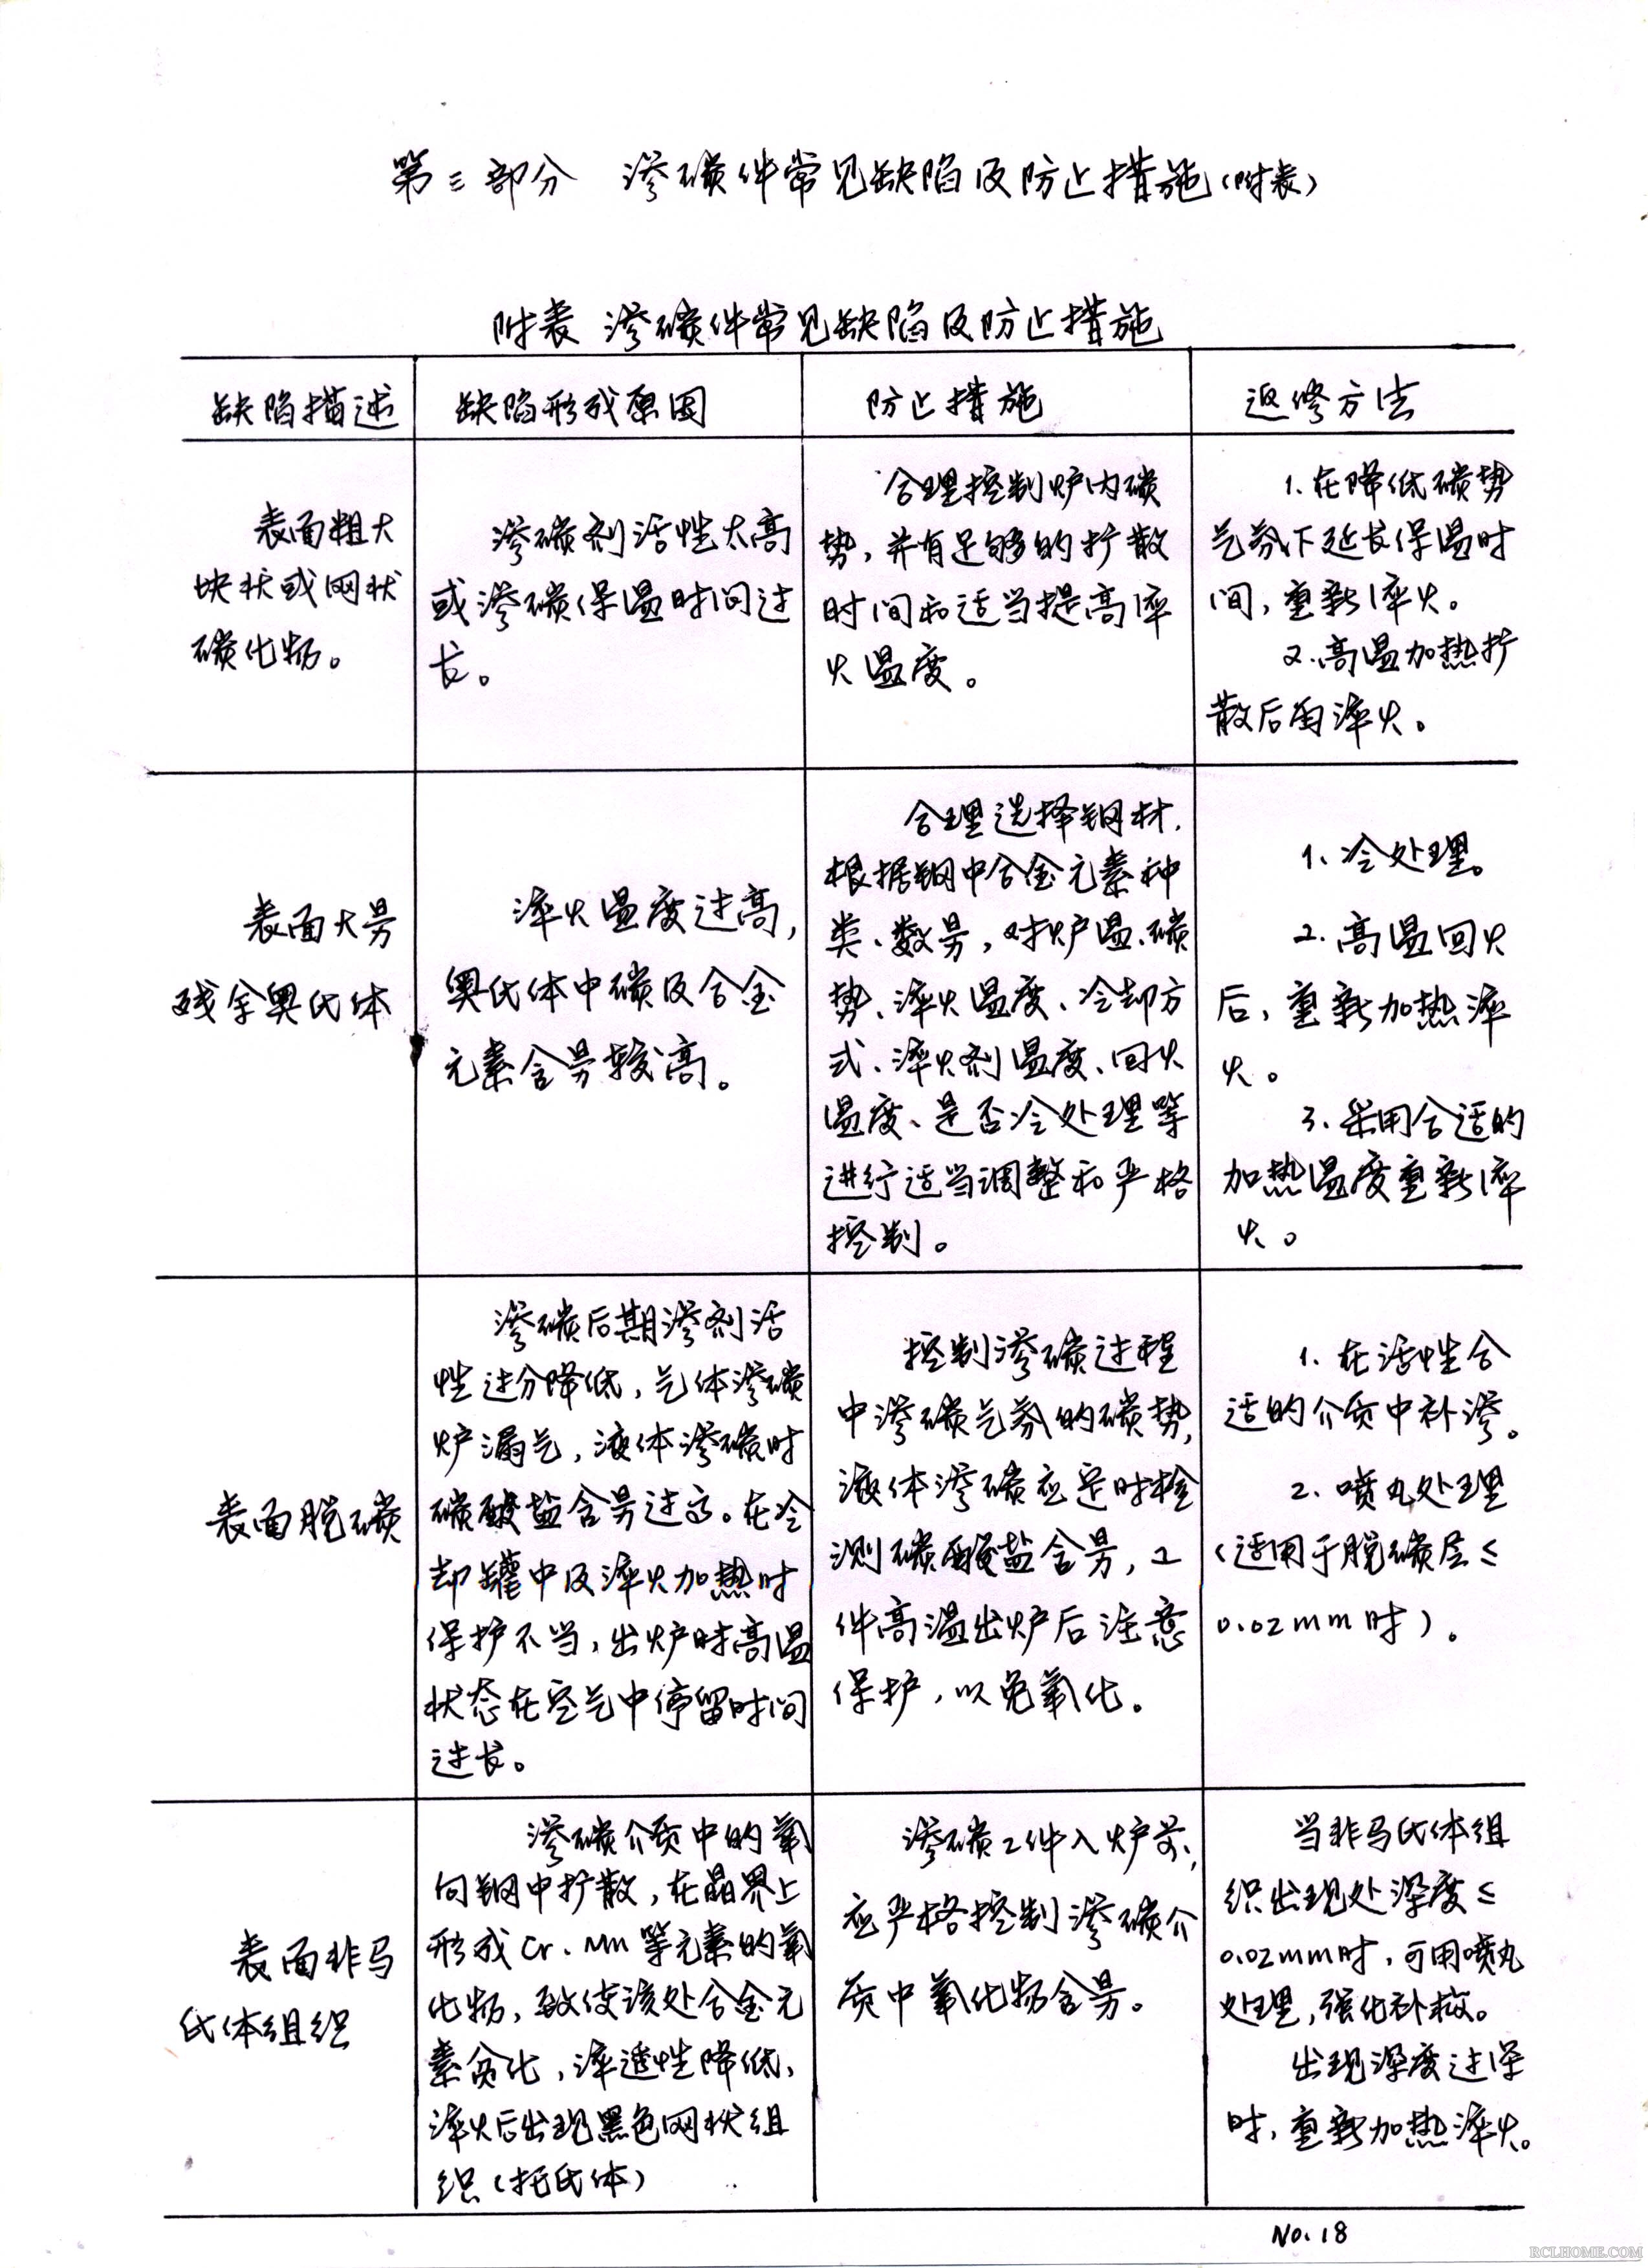 第三部分 渗碳件常见缺陷及防止措施(附表)
附表 渗碳件常见缺陷及防止措施
缺陷描述
缺陷形成原因
防止措施
返修方法
表面粗大
块状或网状
碳化物。
渗碳剂活性太高
或渗碳保温时间过
长。
合理控制炉内碳
势,并有足够的扩散
时间和适当提高淬
火温度。
1、在降低碳势
气氛下延长保温时
间,重新淬火。
2、高温加热扩
散后再淬火。
表面大量
残余奥氏体
淬火温度过高,
奥氏体中碳及合金
元素含量较高。
合理选择钢材,
根据钢中合金元素种
类、数量,对炉温、碳
势、淬火温度、冷却方
式、淬火剂温度、回火
温度、是否冷处理等
进行适当调整和严格
控制。
1、冷处理。
2、高温回火
后,重新加热淬
火。
3、采用合适的
加热温度重新淬
火。
表面脱碳
渗碳后期渗剂活
性过分降低,气体渗碳
炉漏气,液体渗碳时
碳酸盐含量过高。在冷
却罐中及淬火加热时
保护不当,出炉时高温
状态在空气中停留时间
过长。
控制渗碳过程
中渗碳气氛的碳势,
液体渗碳应定时检
测碳酸盐含量,工
件高温出炉后注意
保护,以免氧化。
1、在活性合
适的介质中补渗。
2、喷丸处理
(适用于脱碳层≤
0.02mm时)。
表面非马
氏体组织
渗碳介质中的氧
向钢中扩散,在晶界上
形成Cr、Mn等元素的氧
化物,致使该处合金元
素贫化,淬透性降低,
淬火后出现黑色网状组
织(托氏体)
渗碳工件入炉前,
应严格控制渗碳介
质中氧化物含量。
当非马氏体组
织出现处深度≤
0.02mm时,可用喷丸
处理,强化补救。
出现深度过深
时,重新加热淬火。
No.18
RCLHOME.COM